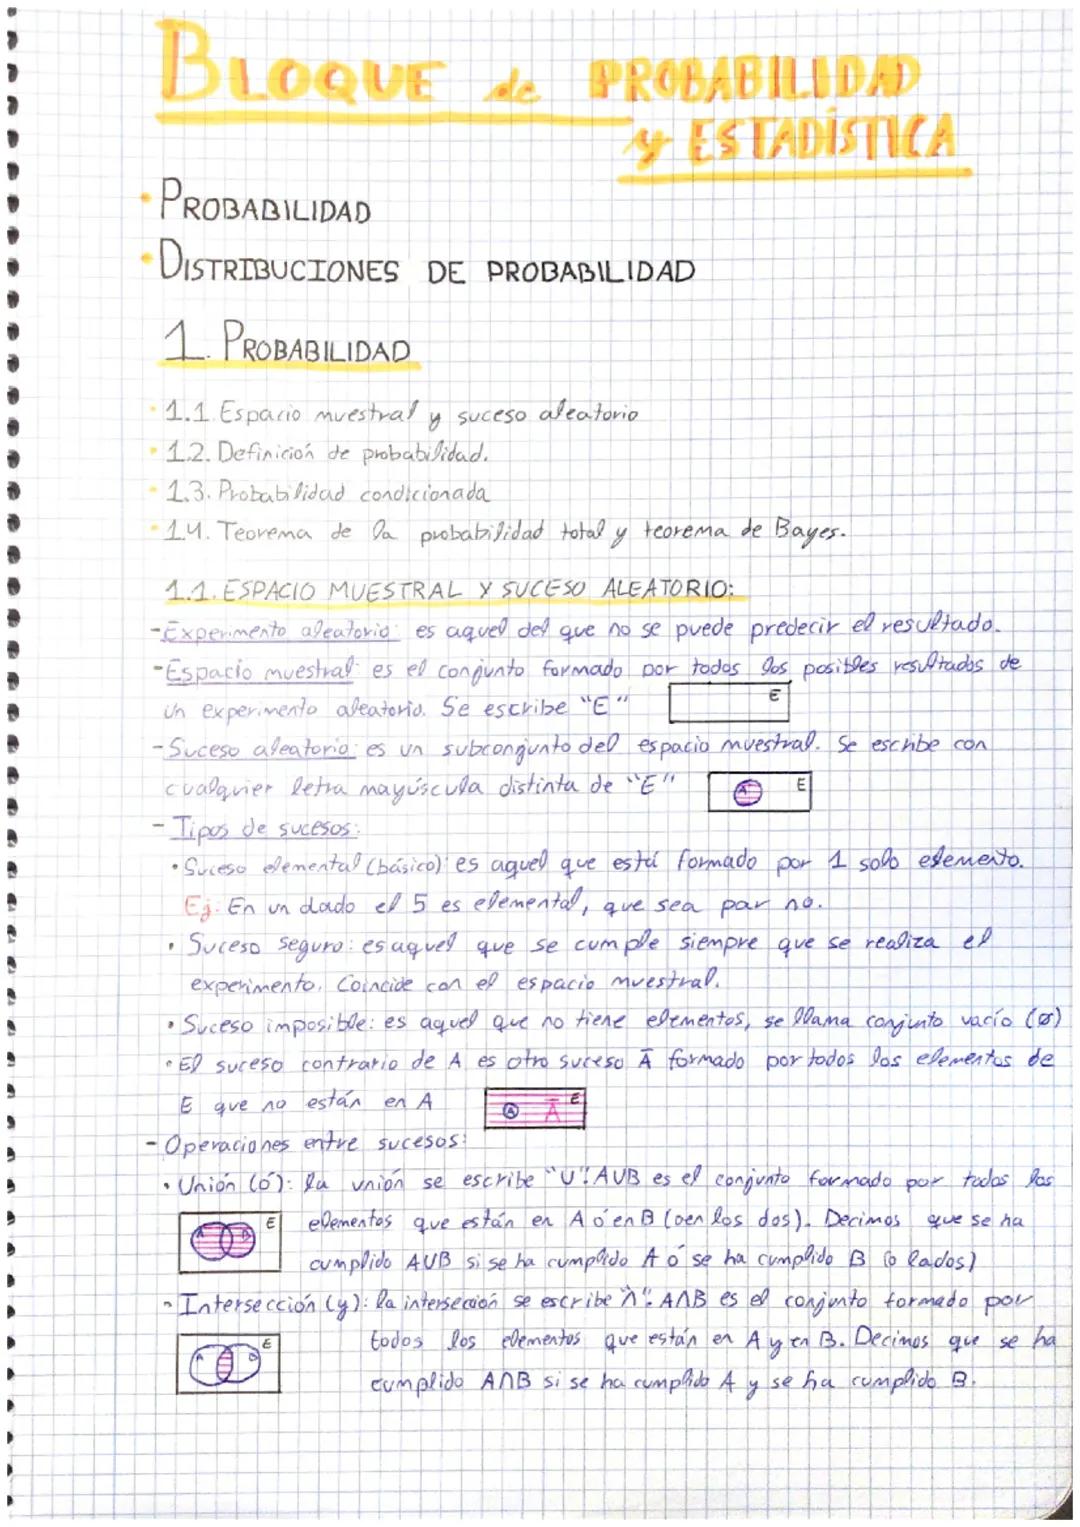 BLOQUE de PROBABILIDAD
y ESTADÍSTICA
· PROBABILIDAD
· DISTRIBUCIONES DE PROBABILIDAD
1. PROBABILIDAD
· 1.1. Espacio muestral y suceso aleatorio
· 1.2. Definición de probabilidad.
· 1.3. Probabilidad condicionada
· 1.4. Teorema de la probabilidad total y teorema de Bayes.
1.1. ESPACIO MUESTRAL Y SUCESO ALEATORIO:
- Experimento aleatorio: es aquel del que no se puede predecir el resultado.
- Espacio muestral: es el conjunto formado por todos los posibles resultados de
un experimento aleatorio. Se escribe "E" E
- Suceso aleatorio: es un subconjunto del espacio muestral. Se escribe con
cualquier letra mayúscula distinta de "E" A E
- Tipos de sucesos:
· Suceso elemental (básico): es aquel que está formado por 1 solo elemento.
Ej: En un dado el 5 es elemental, que sea par no.
· Suceso seguro: es aquel que se cumple siempre que se realiza el
experimento. Coincide con el espacio muestral.
· Suceso imposible: es aquel que no tiene elementos, se llama conjunto vacío (ø)
· El suceso contrario de A es otro suceso Ā formado por todos los elementos de
E que no están en A A Ā E
- Operaciones entre sucesos:
· Unión (ó): la unión se escribe "U". AUB es el conjunto formado por todos los
A B E elementos que están en A ó en B (o en los dos). Decimos que se ha
cumplido AUB si se ha cumplido A ó se ha cumplido B (o lados)
· Intersección (y): la intersección se escribe "∩". A∩B es el conjunto formado por
A B E todos los elementos que están en A y en B. Decimos que se ha
cumplido A∩B si se ha cumplido A y se ha cumplido B.